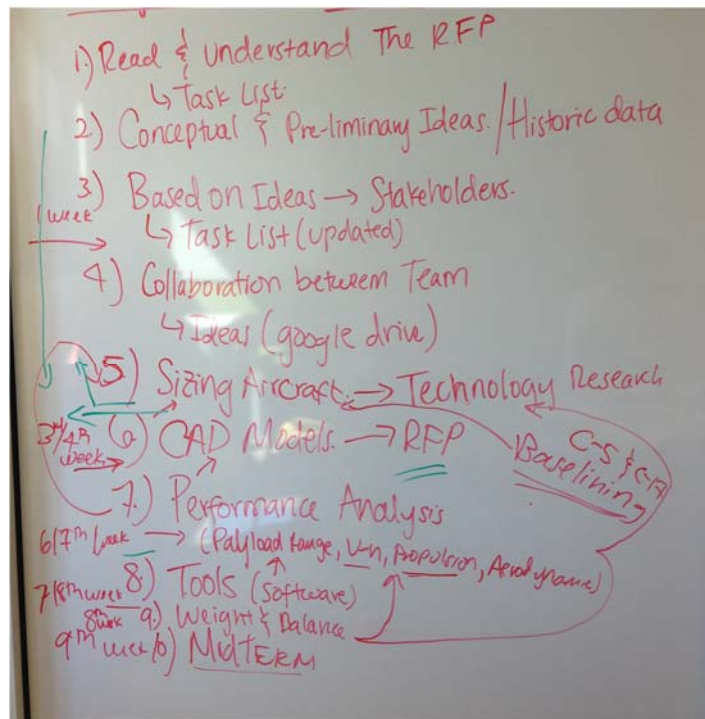 1.) Read & Understand The RFP
↳ Task List.
2) Conceptual & Pre-liminary Ideas. / Historic data
3) Based on Ideas → Stakeholders.
1 week
↳ Task List (updated)
4) Collaboration between Team
↳ Ideas (google drive)
5) Sizing Aircraft. → Technology Research
3rd/4th week 6) CAD Models. → RFP
C-5 & C-17
Baselining
7.) Performance Analysis
6/7th week → (Payload range, V-n, Propulsion, Aerodynamic)
7/8th week 8.) Tools (Software)
8th week 9.) Weight & Balance
9th week 10) MIDTERM